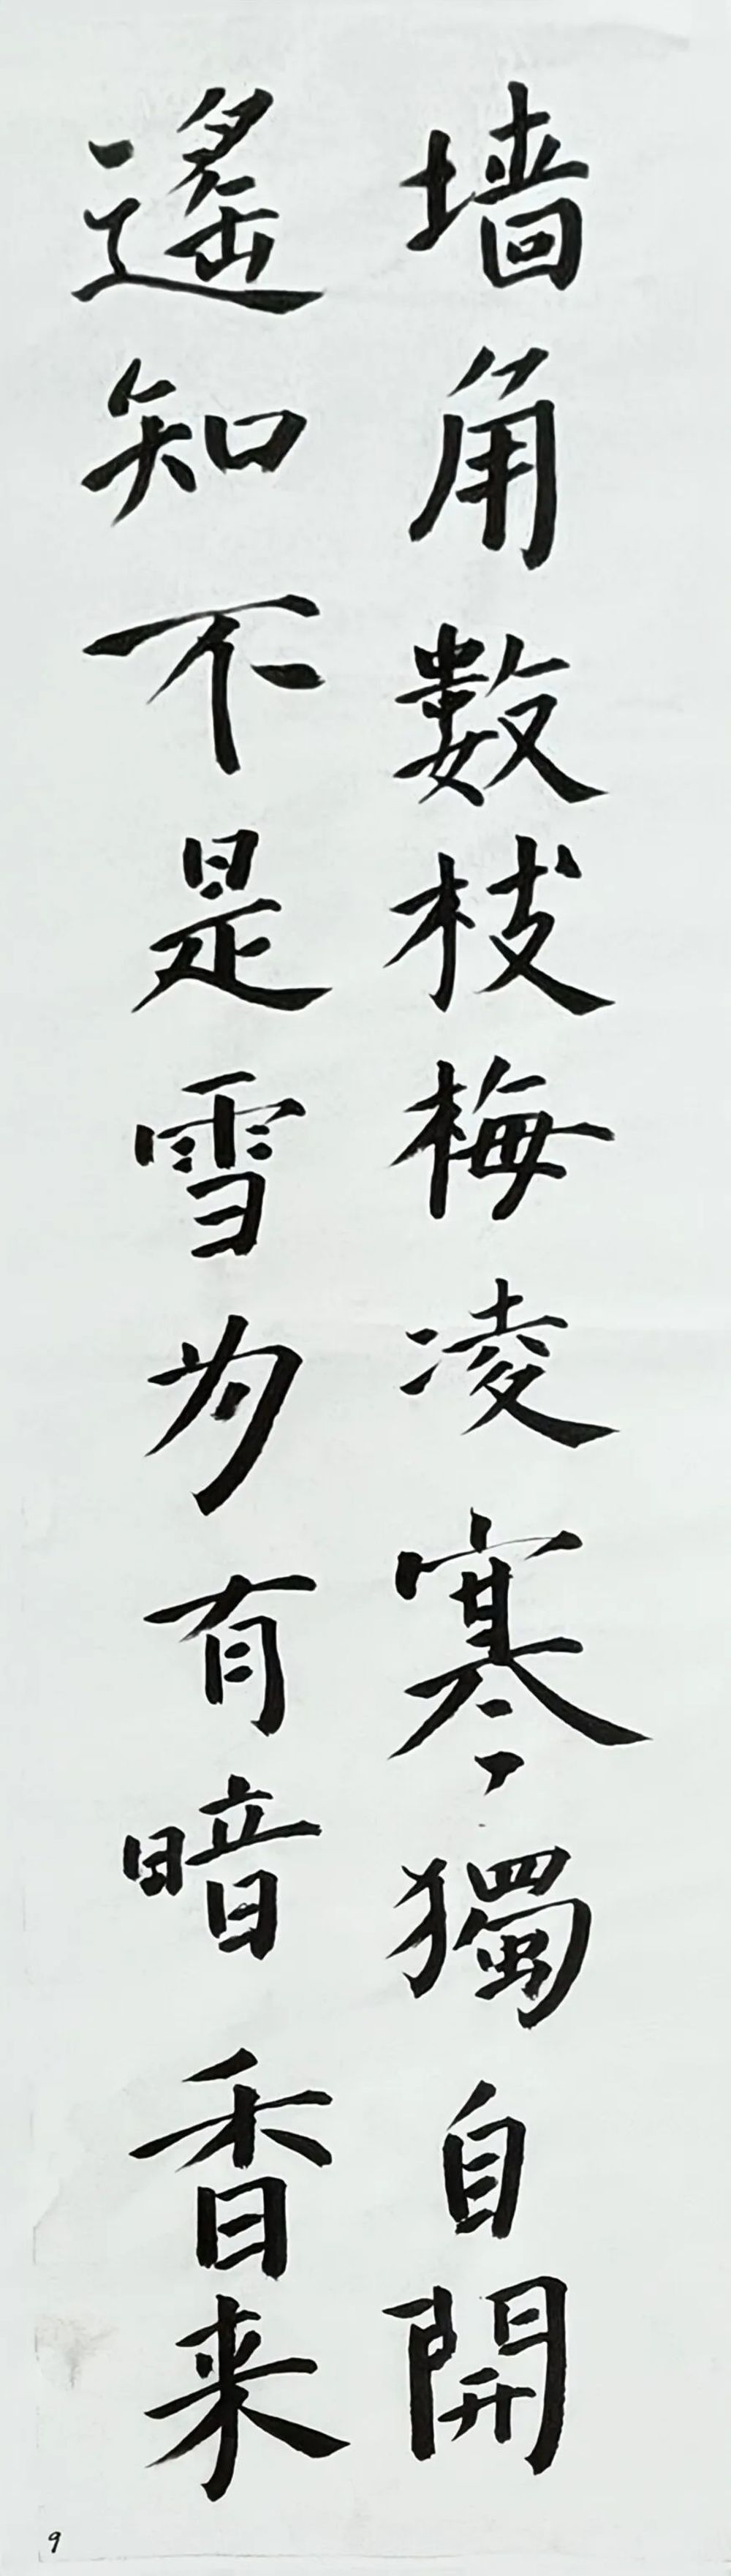 墙角數枝梅凌寒獨自開
遙知不是雪为有暗香来
9